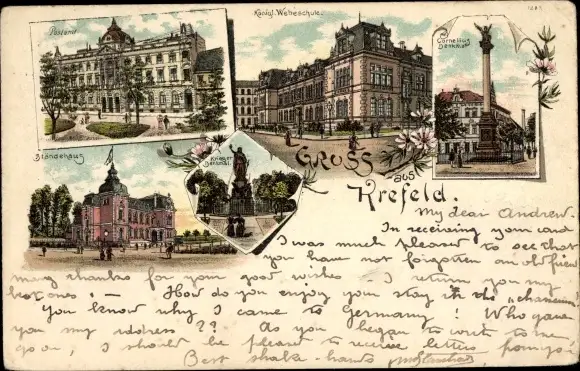 Postamt
Königl. Webeschule.
Cornelius
Denkmal
Ständehaus
Krieger
Denkmal
GRUSS
aus
Krefeld.
My dear Andrew.
In receiving your card
I was much pleased to see that
you have not forgotten an old friend
many thanks for your good wishes - I return you my
hot ones! - How do you enjoy your stay in the "
You know why I came to Germany! Who gave
you my address?? As you began to write to me
go on, I should be pleased to receive letters
Best shake-hands